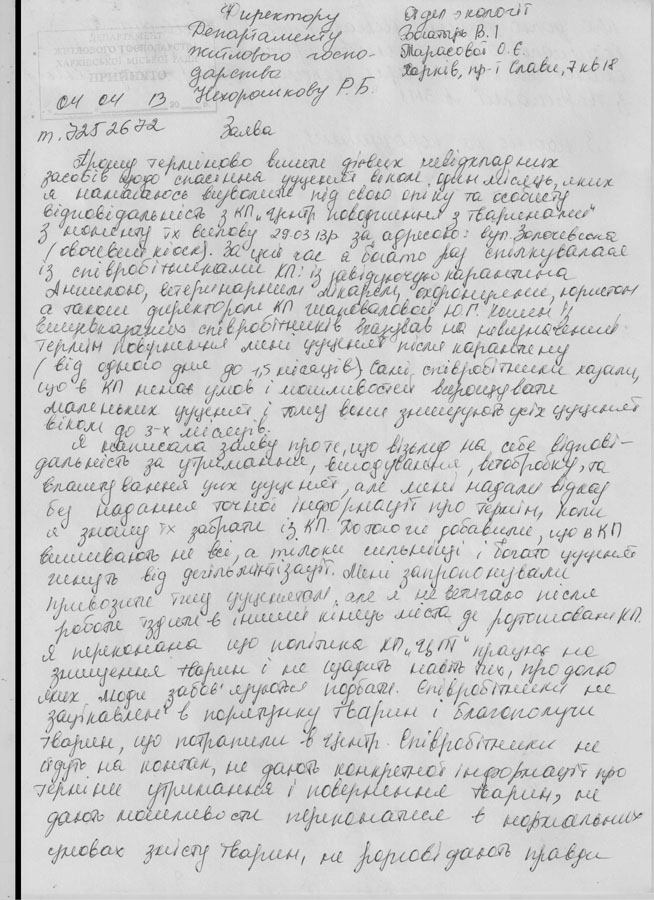 Директору
Департаменту
житлового госпо-
дарства
Нехорошкову Р.Б.
Отдел экології
Богатырь В.І
Тарасової О.Є.
Харків, пр-т Слави, 7 кв 18
ДЕПАРТАМЕНТ
ЖИТЛОВОГО ГОСПОДАРСТВА
ХАРКІВСЬКОЇ МІСЬКОЇ РАДИ
ПРИЙНЯТО
04 04 13
т. 7252672
Заява
Прошу терміново вжити дієвих невідкладних
засобів щодо спасіння цуценят віком один місяць, яких
я намагаюсь визволити під свою опіку та особисту
відповідальність з КП „Центр поводження з тваринами"
з моменту їх вилову 29.03.13р. за адресою: вул. Золочевська
(овочевий кіоск). За цей час я багато раз спілкувалася
із співробітниками КП: із завідуючою карантина
Анжелою, ветеринарним лікарем, охоронцями, юристом
а також директором КП Шаповаловой Ю.Г. Кожен із
вищевказаних співробітників вказував на невизначений
термін повернення мені цуценят після карантину
(від одного дня до 1,5 місяців) Самі співробітники казали,
що в КП немає умов і можливостей вирощувати
маленьких цуценят і тому вони знищують усіх цуценят
віком до 3-х місяців.
Я написала заяву проте, що візьму на себе відпові-
дальність за утримання, вигодування, ветобробку, та
влаштування цих цуценят, але мені надали відказ
без надання точної інформації про термін, коли
я зможу їх забрати із КП. Потом же добавили, що в КП
виживають не всі, а тільки сильніші і багато цуценят
гинуть від дегільмінтізації. Мені запропонували
привозити їжу цуценятам, але я не встигаю після
роботи їздити в інший кінець міста де розташован КП.
Я переконана що політика КП „ЦПТ" працює на
знищення тварин і не щадить навіть тих, про долю
яких люди забов'язуються подбати. Співробітники не
зацікавлені в порятунку тварин і благополучи
тварин, що потрапили в Центр. Співробітники не
йдуть на контак, не дають конкретної інформації про
терміни утримання і повернення тварин, не
дають можливости переконатися в нормальних
умовах змісту тварин, не розповідають правди